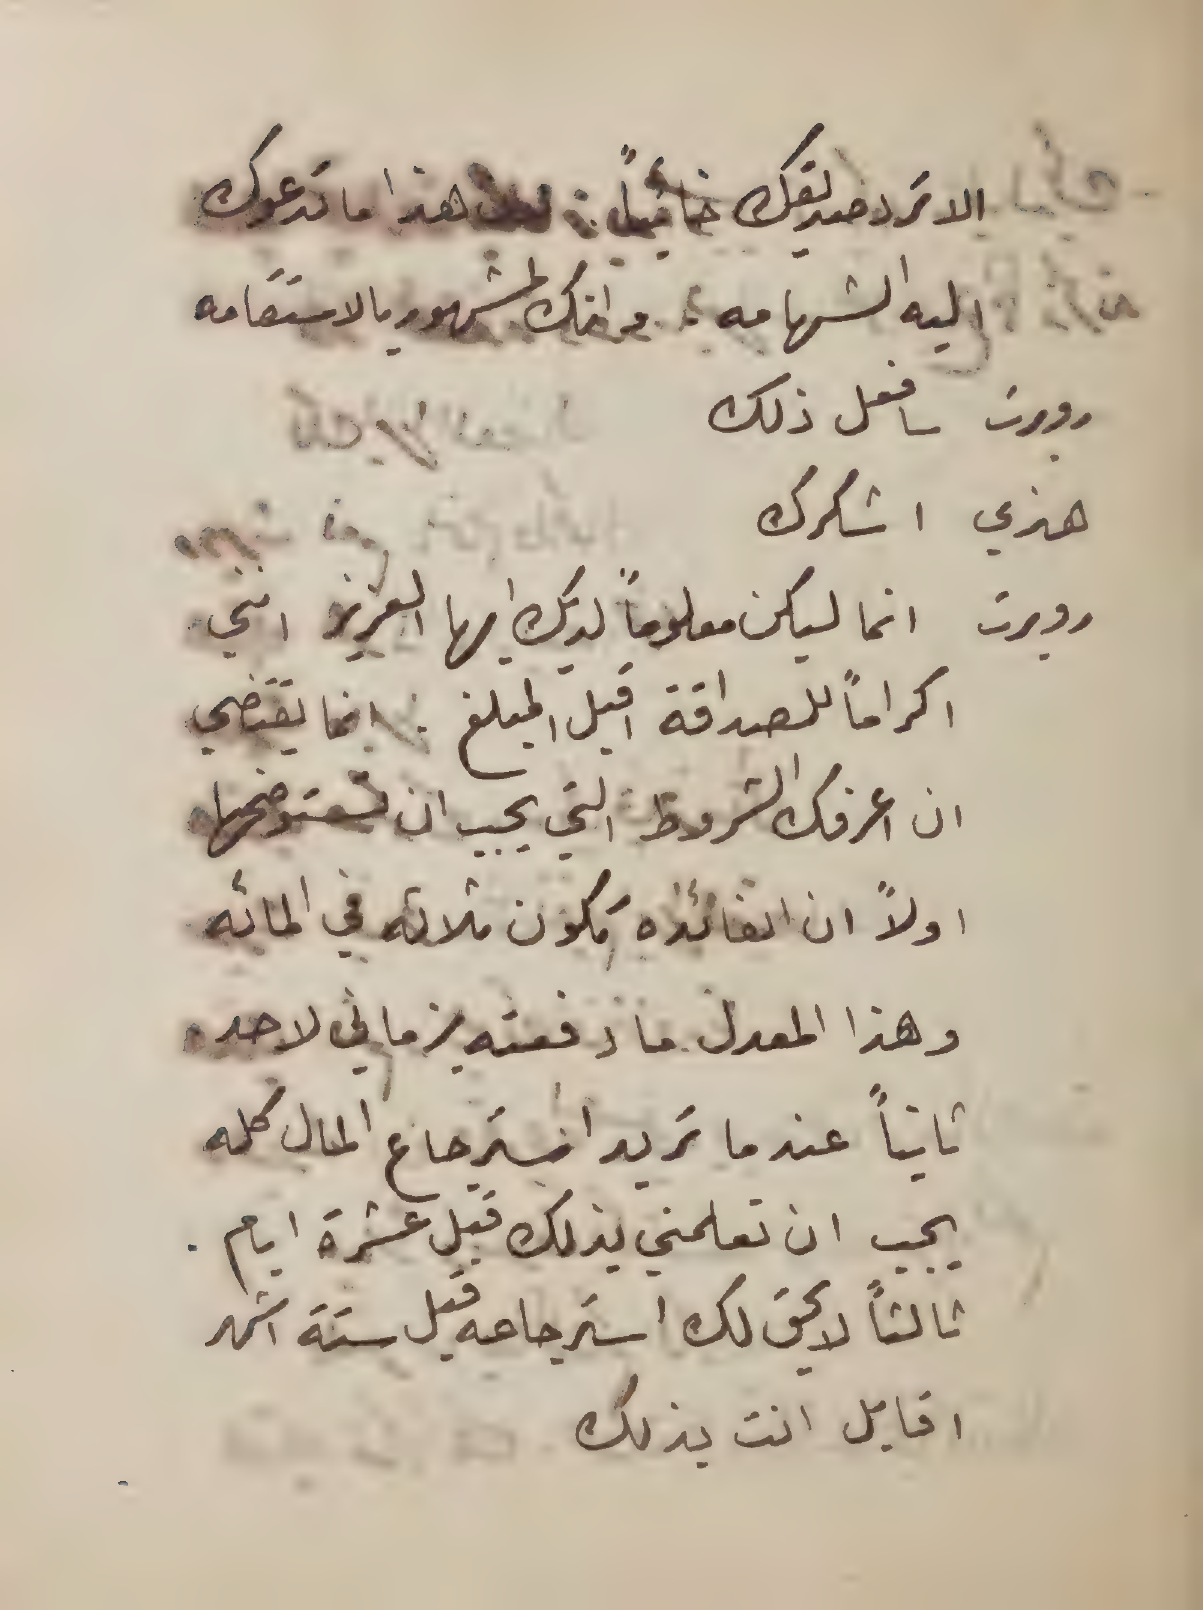 الا ترد صديقك خائباً : هذا ما تدعوك
اليه الشهامه : وانك المشهور بالاستقامه
روبرت سافعل ذلك
هنري اشكرك
روبرت انما ليكن معلوماً لديك ايها العزيز انني
اكراماً للصداقة اقبل المبلغ . انما يقتضي
ان اعرفك الشروط التي يجب ان تستوضحها
اولاً ان الفائده تكون ثلاثه في المائه
وهذا المعدل ما دفعته بزماني لاحد
ثانياً عندما تريد استرجاع المال كله
يجب ان تعلمني بذلك قبل عشرة ايام .
ثالثاً لا يحق لك استرجاعه قبل ستة اشهر
اقابل انت بذلك